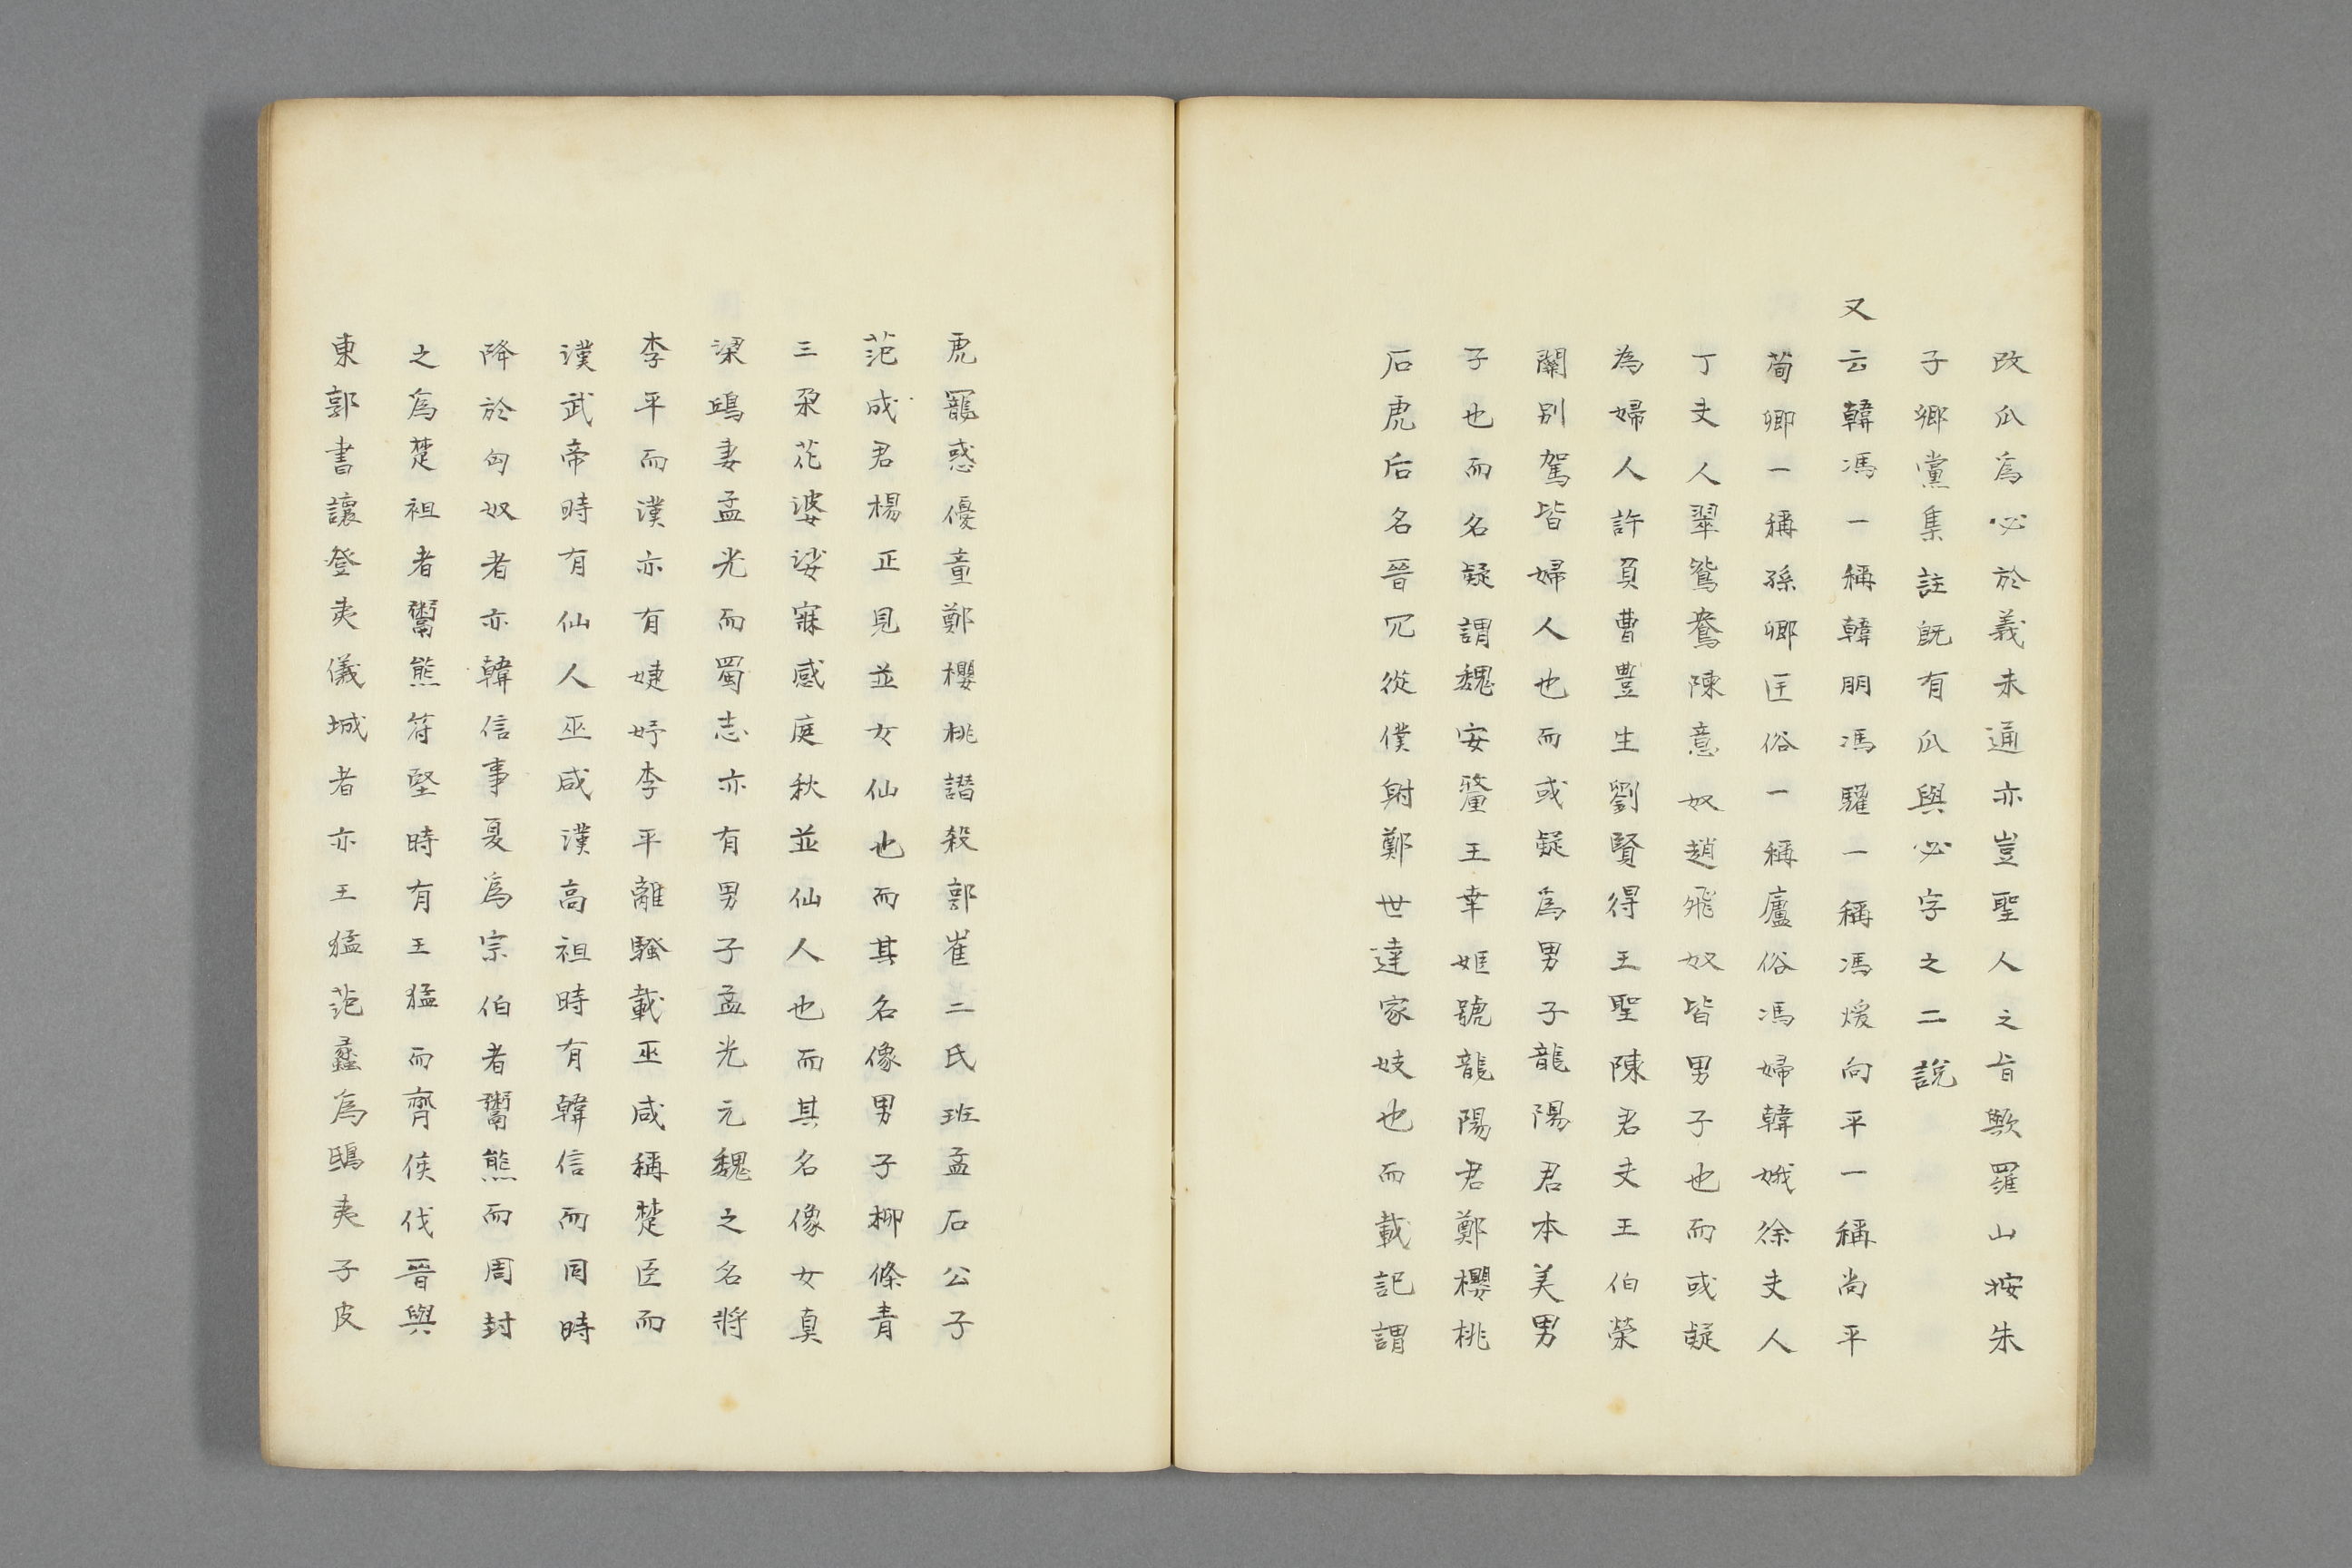 改瓜爲必於義未通亦豈聖人之旨歟羅山按朱
子鄉黨集註既有瓜與必字之二說
又云韓馮一稱韓朋馮驩一稱馮煖向平一稱尚平
荀卿一稱孫卿匡俗一稱廬俗馮婦韓娥徐夫人
丁夫人翠鴛鴦陳意奴趙飛奴皆男子也而或疑
為婦人許負曹豊生劉賢得王聖陳君夫王伯榮
闌別駕皆婦人也而或疑爲男子龍陽君本美男
子也而名疑謂魏安釐王幸姬號龍陽君鄭櫻桃
石虎后名晉冗從僕射鄭世達家妓也而載記謂
虎寵惑優童鄭櫻桃譖殺郭崔二氏班孟石公子
范成君楊正見並女仙也而其名像男子柳條青
三朶花婆娑寐感庭秋並仙人也而其名像女真
梁鴻妻孟光而蜀志亦有男子孟光元魏之名將
李平而漢亦有婕妤李平離騷載巫咸稱楚臣而
漢武帝時有仙人巫咸漢高祖時有韓信而同時
降於匈奴者亦韓信事夏爲宗伯者鬻熊而周封
之爲楚祖者鬻熊符堅時有王猛而齊侯伐晉與
東郭書讓登夷儀城者亦王猛范蠡爲鴟夷子皮